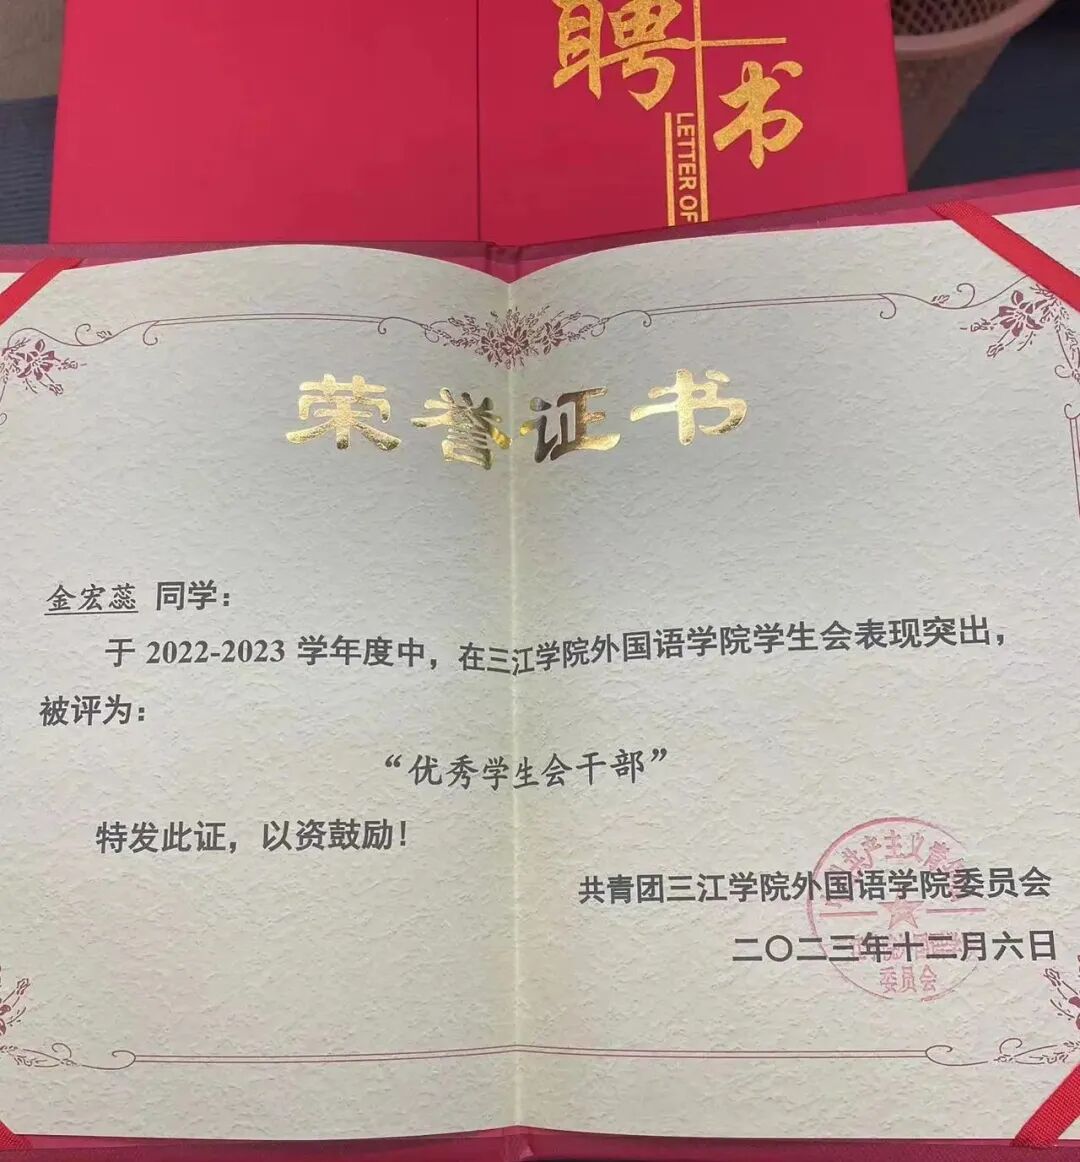 聘书
LETTER OF
荣誉证书
金宏蕊 同学：
于 2022-2023 学年度中，在三江学院外国语学院学生会表现突出，
被评为：
“优秀学生会干部”
特发此证，以资鼓励！
共青团三江学院外国语学院委员会
二〇二三年十二月六日
共产主义青
委员会